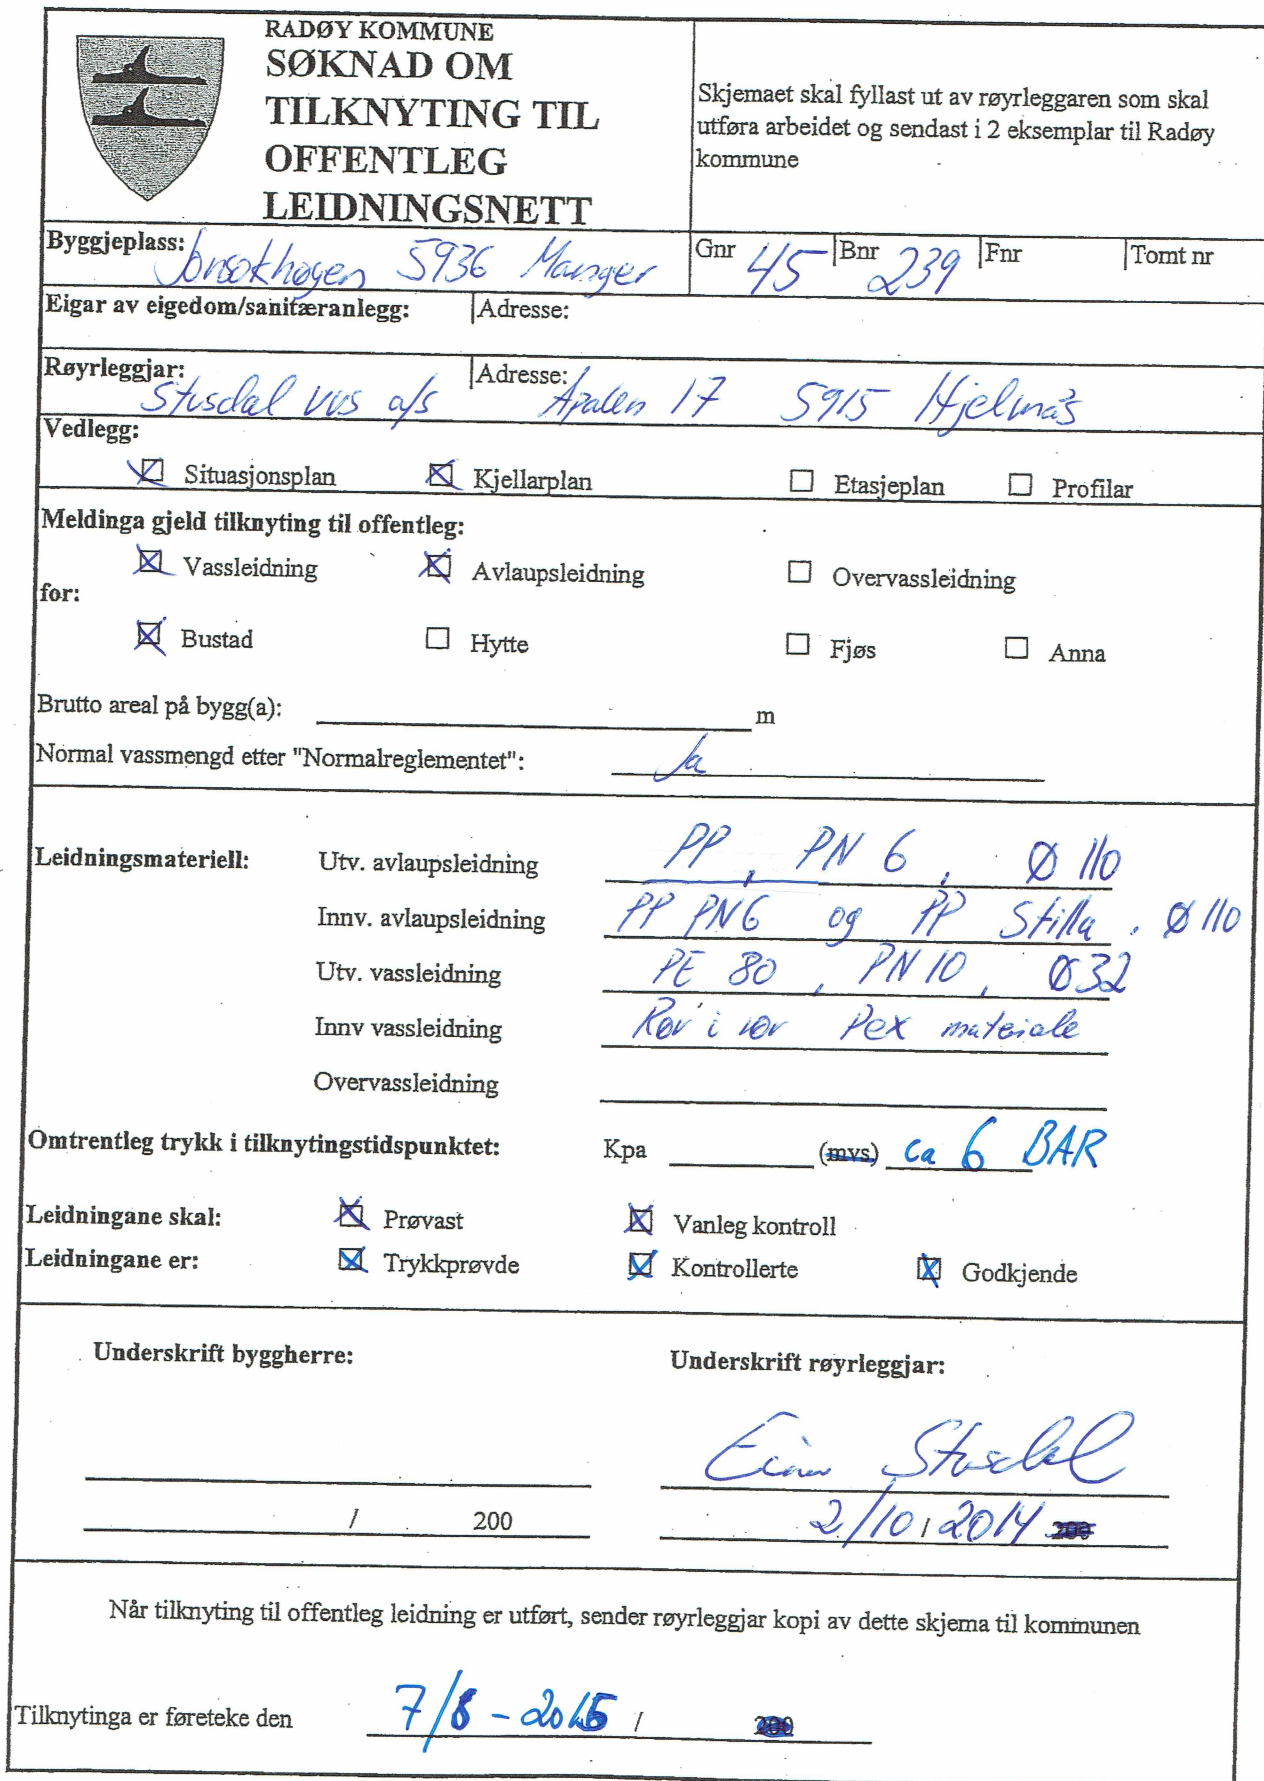 RADØY KOMMUNE
SØKNAD OM
TILKNYTING TIL
OFFENTLEG
LEIDNINGSNETT
Skjemaet skal fyllast ut av røyrleggaren som skal
utføra arbeidet og sendast i 2 eksemplar til Radøy
kommune
Byggjeplass: Jonsokhøgen 5936 Manger
Gnr 45 Bnr 239 Fnr Tomt nr
Eigar av eigedom/sanitæranlegg: Adresse:
Røyrleggjar: Stusdal VVS a/s Adresse: Apalen 17 5915 Hjelmås
Vedlegg:
Situasjonsplan Kjellarplan Etasjeplan Profilar
Meldinga gjeld tilknyting til offentleg:
Vassleidning Avlaupsleidning Overvassleidning
for:
Bustad Hytte Fjøs Anna
Brutto areal på bygg(a): m
Normal vassmengd etter "Normalreglementet": Ja
Leidningsmateriell: Utv. avlaupsleidning PP, PN 6, Ø 110
Innv. avlaupsleidning PP PN6 og PP Stilla, Ø 110
Utv. vassleidning PE 80, PN 10, Ø32
Innv vassleidning Rør i rør Pex materiale
Overvassleidning
Omtrentleg trykk i tilknytingstidspunktet: Kpa (mvs) ca 6 BAR
Leidningane skal: Prøvast Vanleg kontroll
Leidningane er: Trykkprøvde Kontrollerte Godkjende
Underskrift byggherre: Underskrift røyrleggjar:
Einar Stusdal
/ 200 2/10/2014 200
Når tilknyting til offentleg leidning er utført, sender røyrleggjar kopi av dette skjema til kommunen
Tilknytinga er føreteke den 7/8-2015 / 200